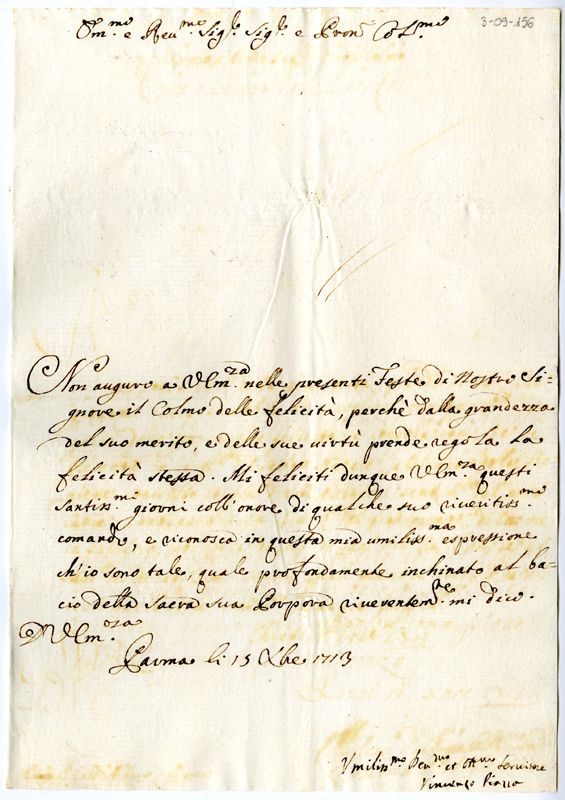 3-09-156
Em.mo e Reu.mo Sig.r Sig.r e Pron Col.mo
Non auguro a V Em.za nelle presenti Feste di Nostro Si=
gnore il Colmo delle felicità, perchè dalla grandezza
del suo merito, e delle sue virtù prende regola la
felicità stessa. Mi feliciti dunque V Em.za questi
santiss.mi giorni coll'onore di qualche suo riveritiss.mo
comando, e riconosca in questa mia umiliss.ma espressione
ch'io sono tale, quale profondamente inchinato al ba=
cio della sacra sua Porpora riverentem.te mi dico.
D V Em.za
Parma li 15 Xbre 1713
Vmiliss.mo Deu.mo et Obl.mo Servitore
Vincenzo Piazza